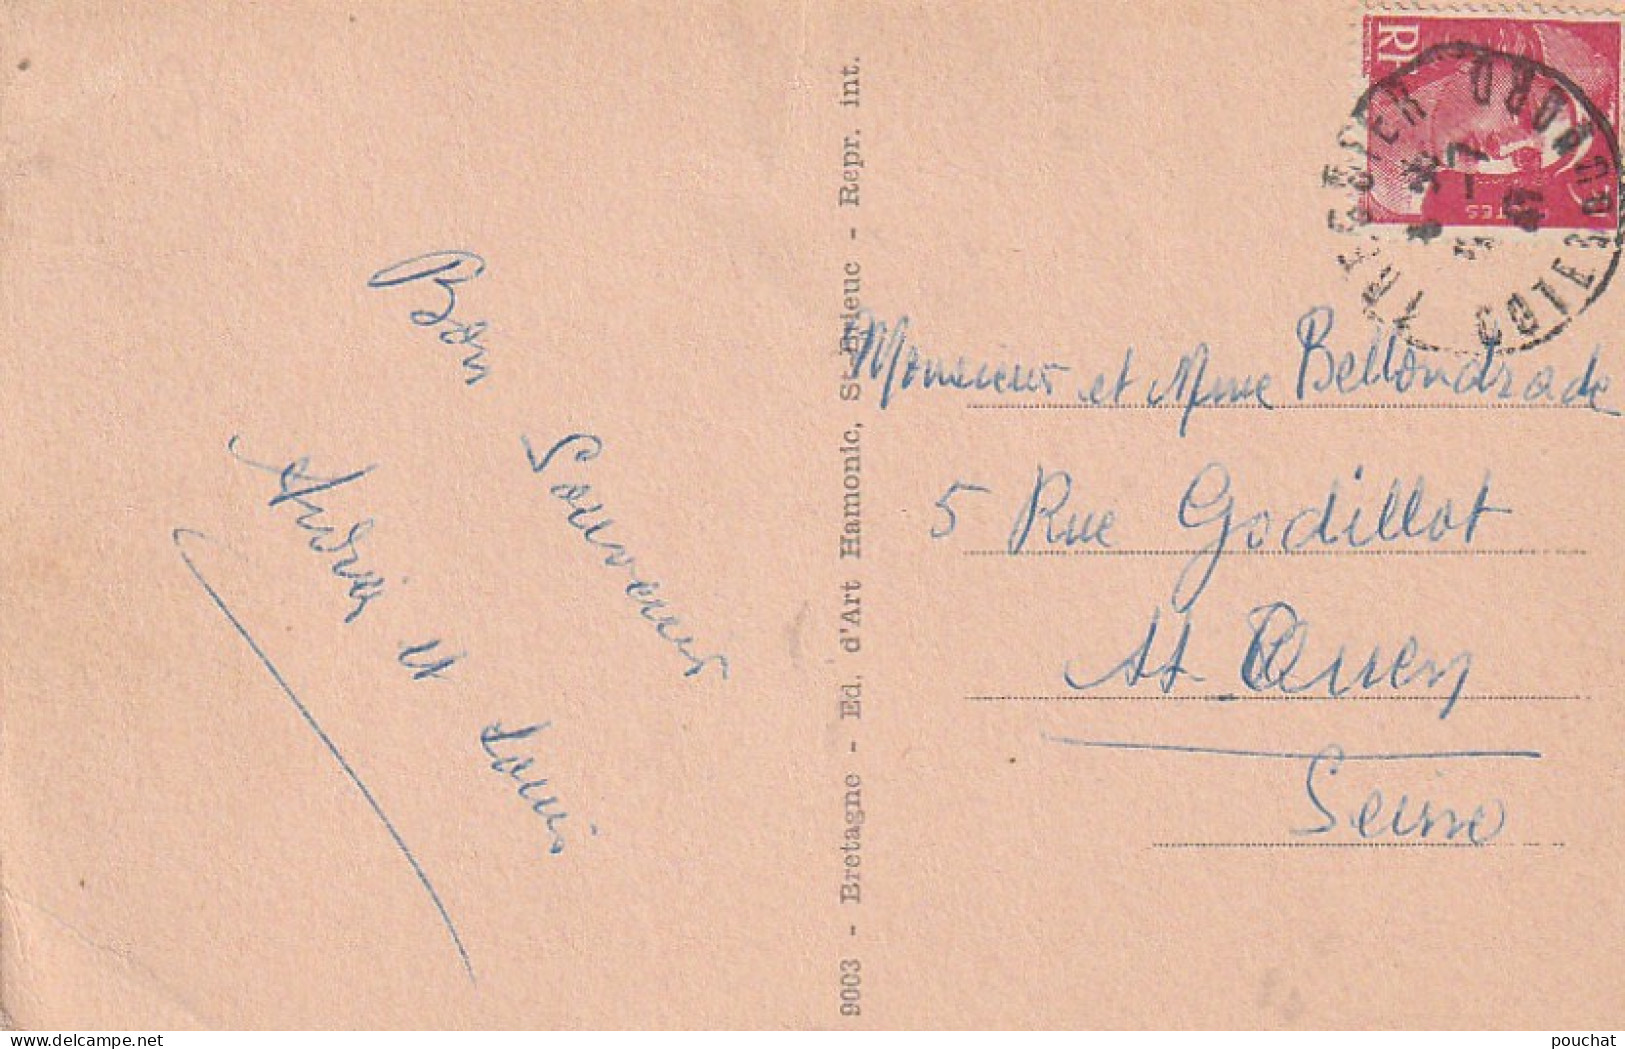 Bon
Souvenir
Andrée et
Louis
9003 - Bretagne - Ed. d'Art Hamonic, St-Brieuc - Repr. int.
RF
TREGUIER
COTES DU NORD
Monsieur et Mme Bellondrade
5 Rue Godillot
St Ouen
Seine
pouchat